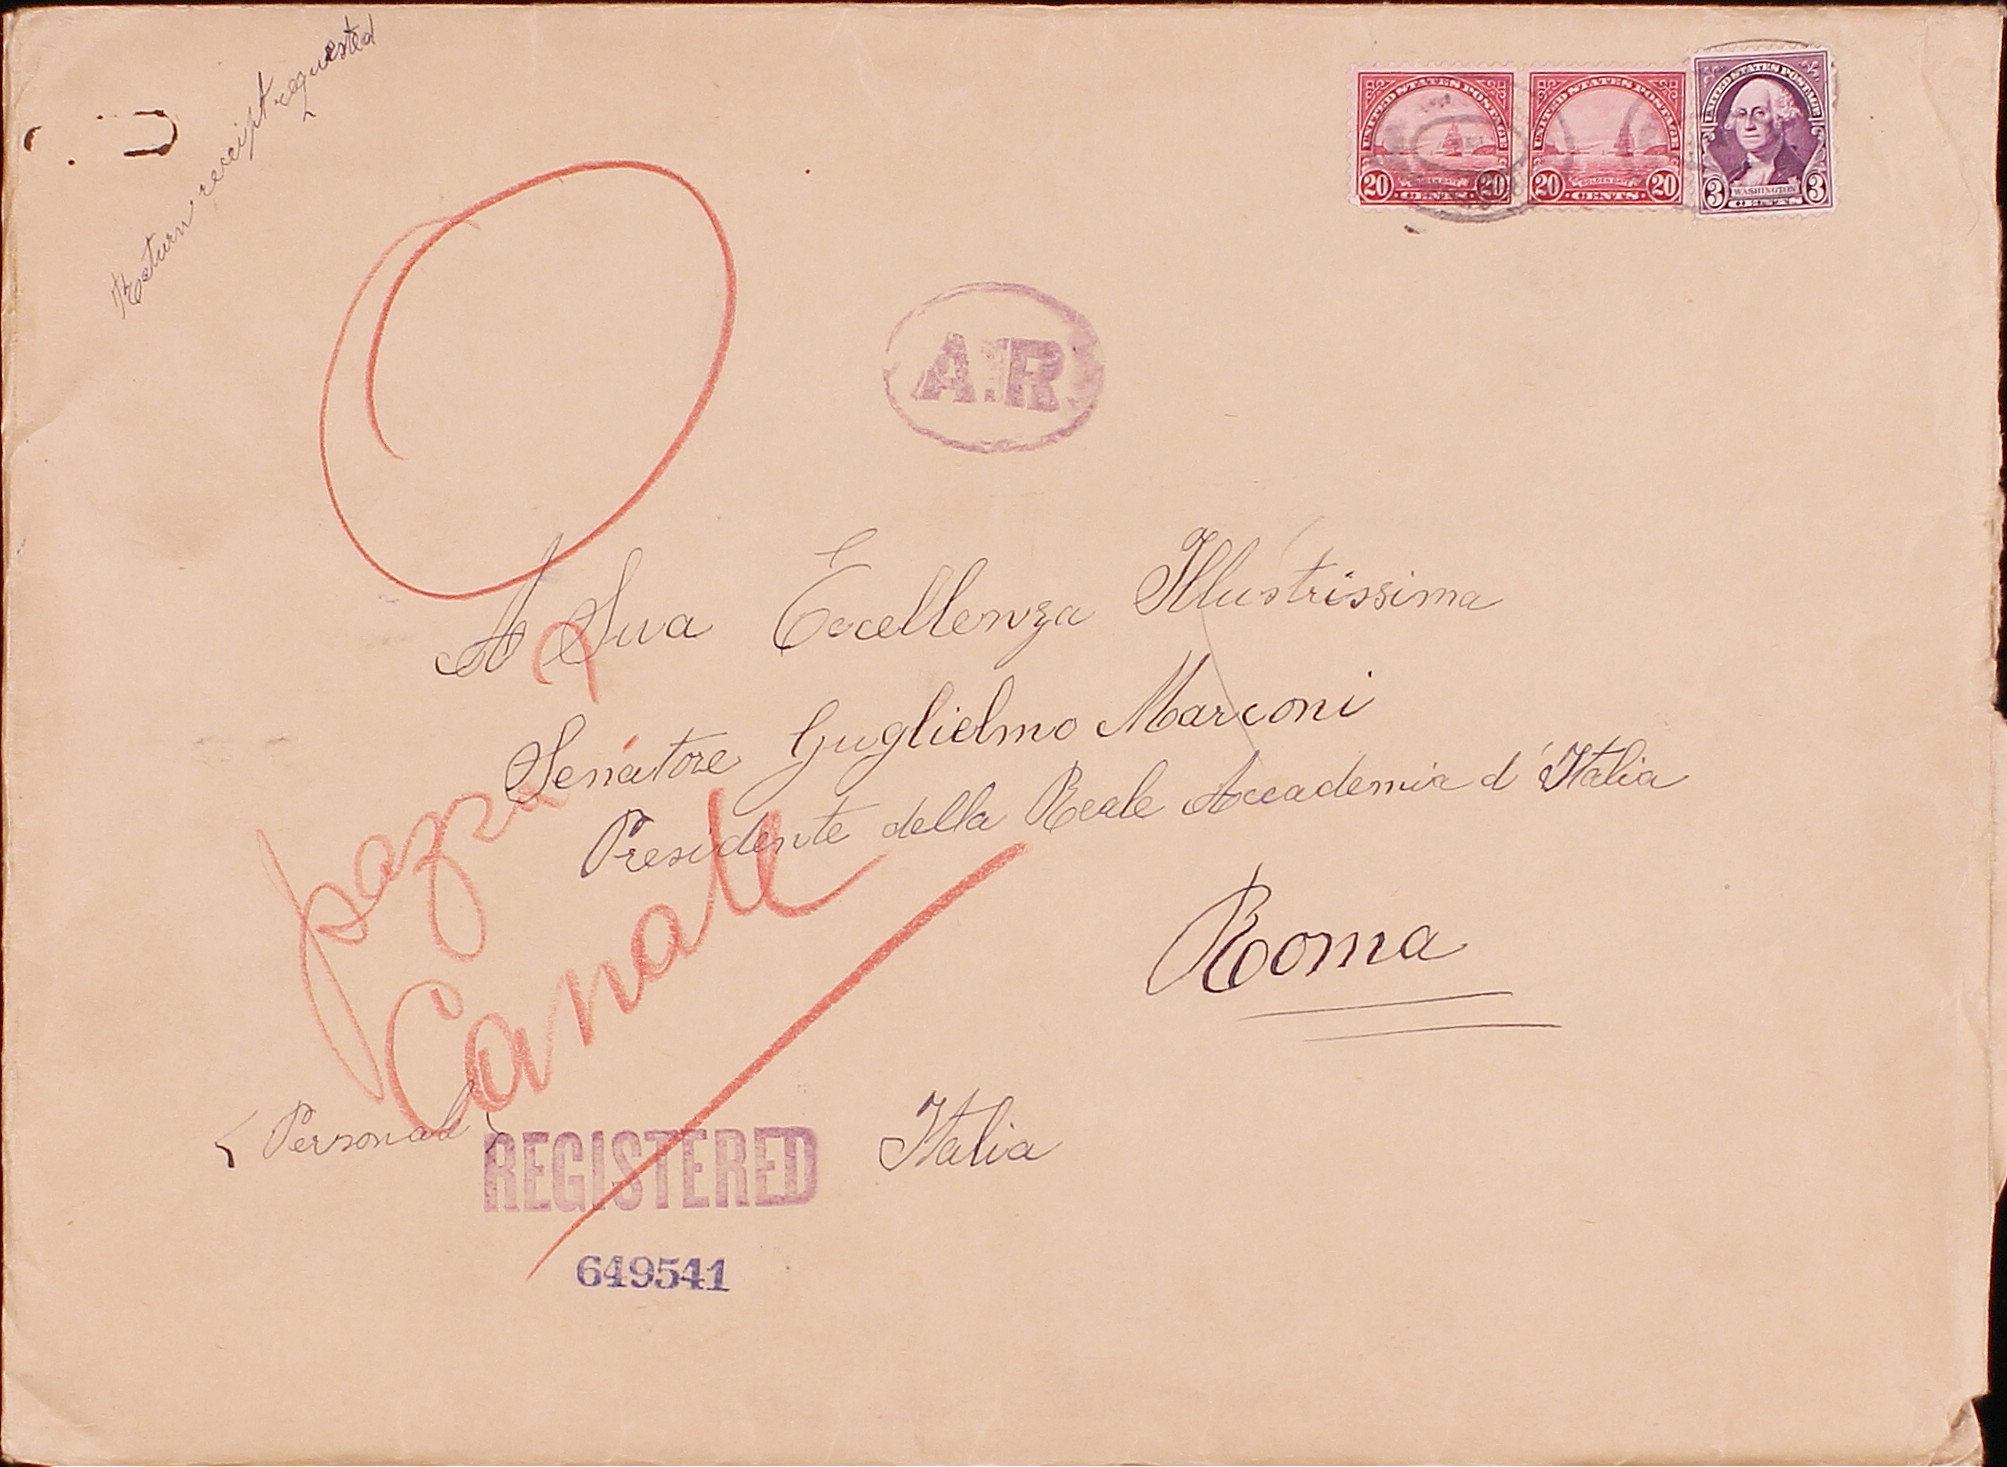 Return receipt requested
UNITED STATES POSTAGE
GOLDEN GATE
20 20
CENTS
UNITED STATES POSTAGE
GOLDEN GATE
20 20
CENTS
UNITED STATES POSTAGE
WASHINGTON
3 3
CENTS
A.R.
A Sua Eccellenza Illustrissima
Senatore Guglielmo Marconi
Presidente della Reale Accademia d'Italia
Roma
pazza
Canale
Personal
REGISTERED
Italia
649541